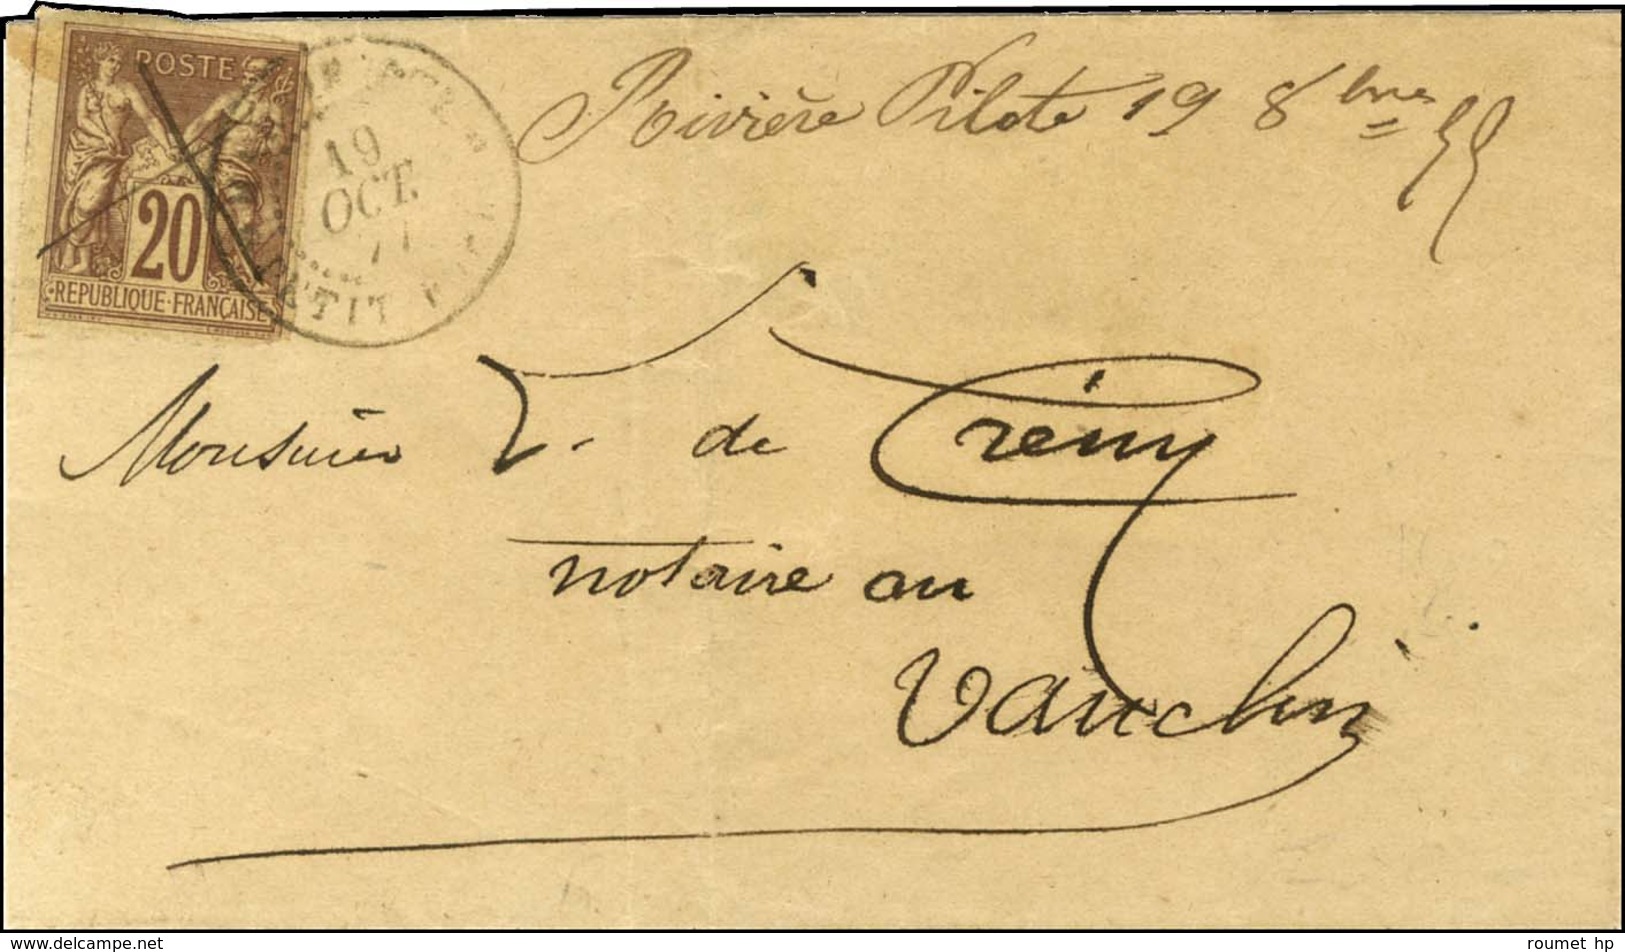 POSTE
20
REPUBLIQUE FRANÇAISE
19
OCT.
77
Rivière Pilote 19 8bres 77
Monsieur T. de Crény
notaire au
Vauclin
www.delcampe.net
roumet hp